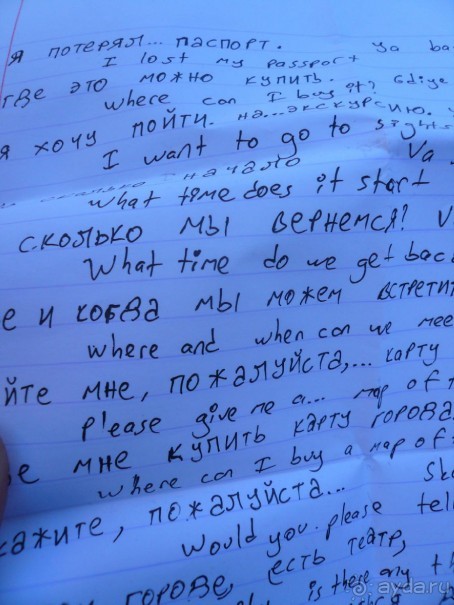 я потерял... паспорт. ya
I lost my passport
где это можно купить. Gdiye
where can I buy it?
я хочу пойти. на...экскурсию.
I want to go to
начало Va
what time does it start
сколько мы вернемся?
What time do we get bac
е и когва мы можем встрети
where and when can we mee
йте мне, пожалуйста,... карту
please give me a... map of
е мне купить карту города
where can I buy a map of
кажите, пожалуйста... Sk
Would you please tel
городе, есть театр,
is there any th
ayda.ru